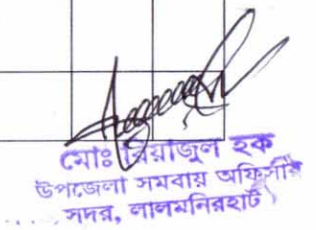 মোঃ রিয়াজুল হক
উপজেলা সমবায় অফিসার
সদর, লালমনিরহাট